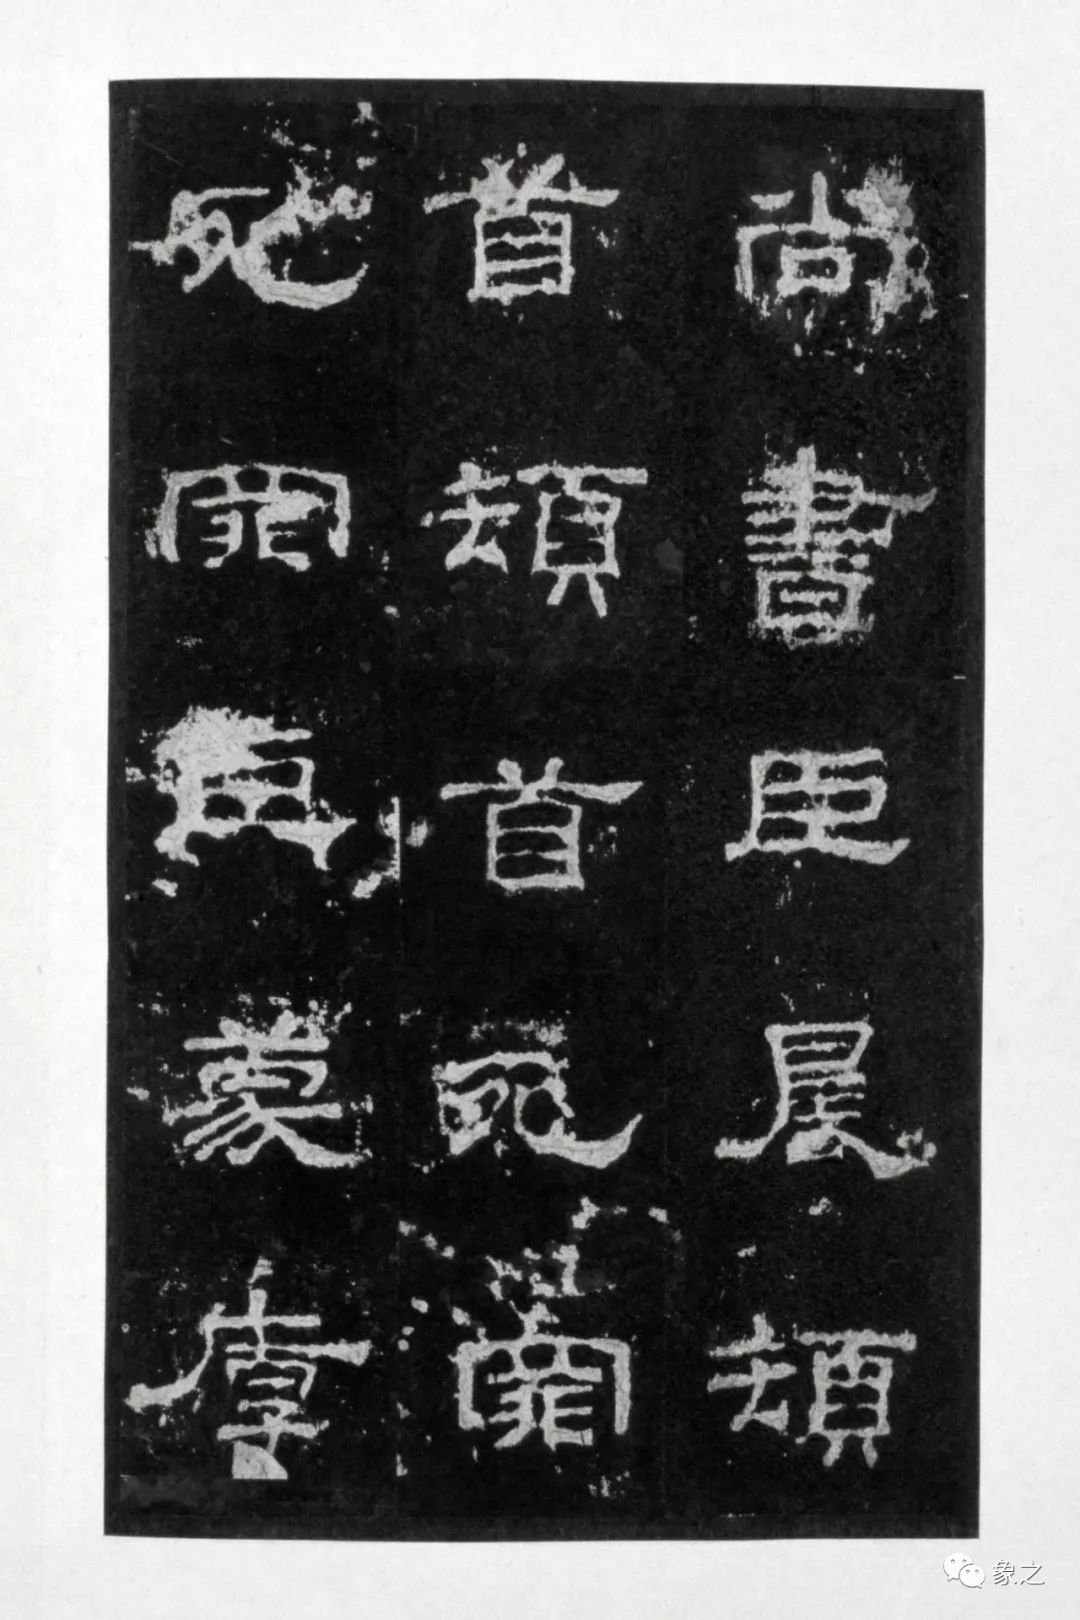 尚書臣晨頓
首頓首死罪
死罪臣蒙厚
象之